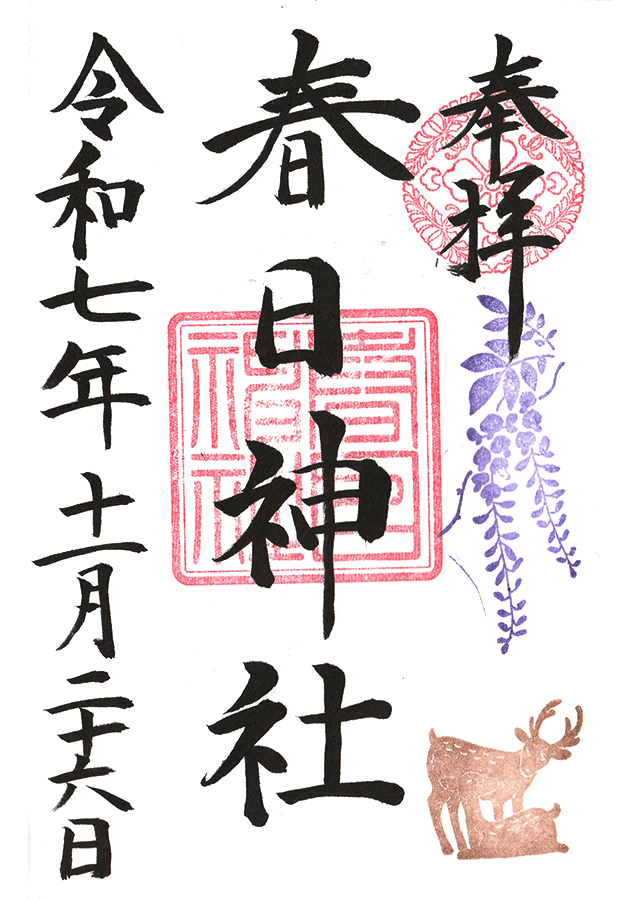 奉拝
春日神社
令和七年十一月二十六日